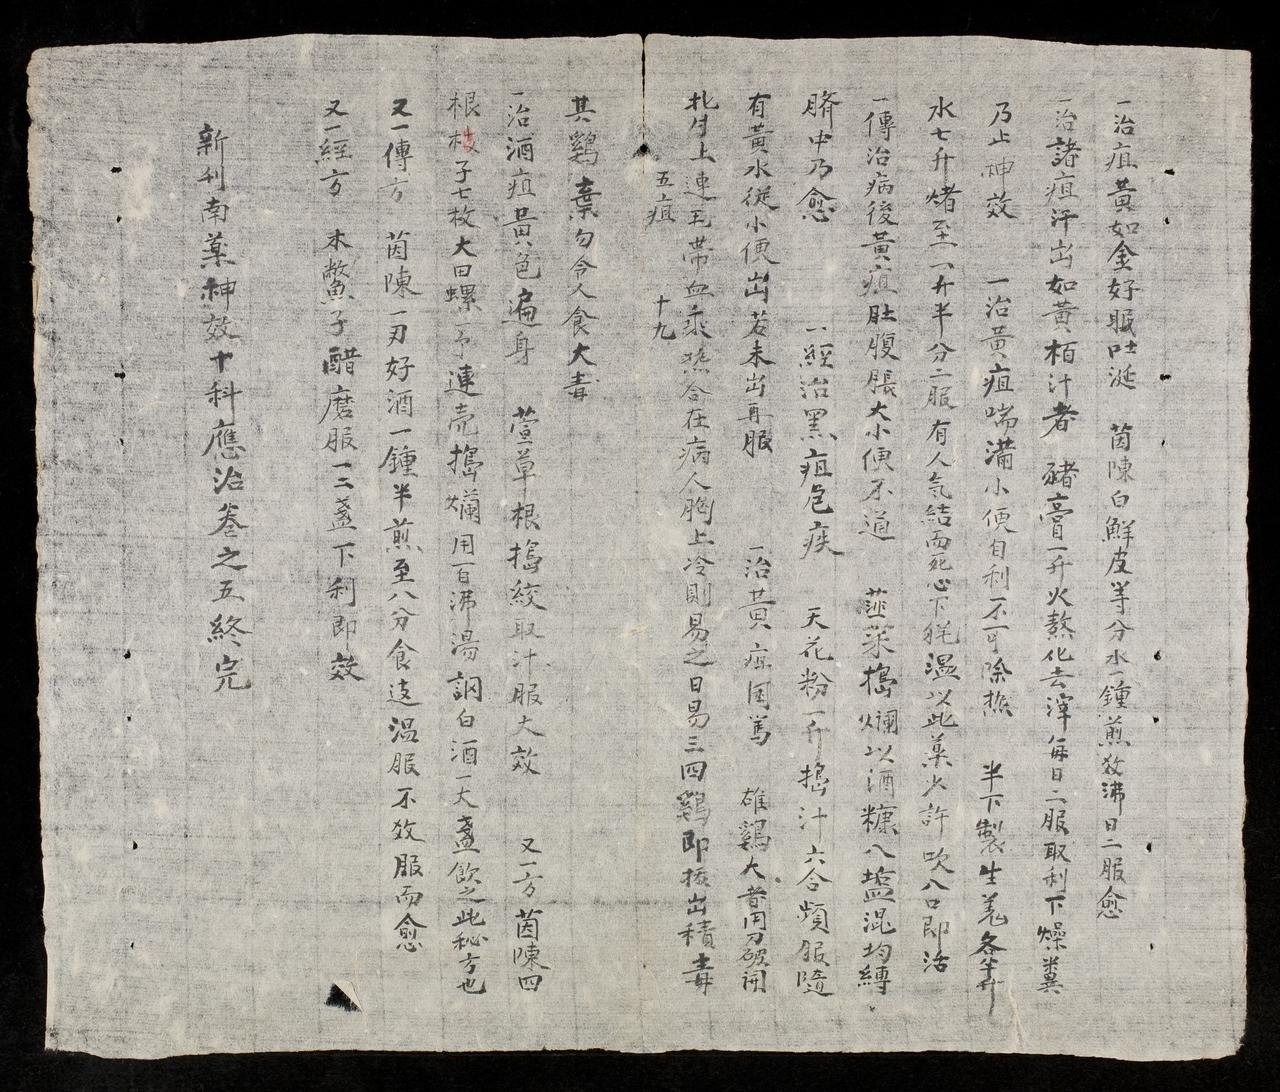 一治疸黃如金好眠吐涎　茵陳白鮮皮等分水一鍾煎数沸日二服愈
一治諸疸汗出如黃栢汁者　豬膏一升火熬化去滓每日二服取利下燥糞
乃止神效　一治黃疸喘滿小便自利不可除熱　半下製生羗各半升
水七升煑至一升半分二服有人氣結而死心下猶溫以此藥少許吹入口即活
一傳治病後黃疸肚腹脹大小便不通　薤菜搗爛以酒糠入塩混均縛
臍中乃愈　一經治黑疸危疾　天花粉一升搗汁六合頻服隨
有黃水從小便出若未出再服　一治黃疸困篤　雄雞大者用刀破開
背上連毛帶血乘熱合在病人胸上冷則易之日易三四鷄即拔出積毒
五疸　十九
其鷄棄勿令人食大毒
一治酒疸黃色遍身　萱草根搗絞取汁服大效　又一方茵陳四
根梔子七枚大田螺一个連壳搗爛用百沸湯調白酒一大盞飲之此秘方也
又一傳方　茵陳一刃好酒一鍾半煎至八分食远溫服不效服而愈
又一經方　木鱉子醋磨服一二盞下利即效
新刊南藥神效十科應治卷之五終完